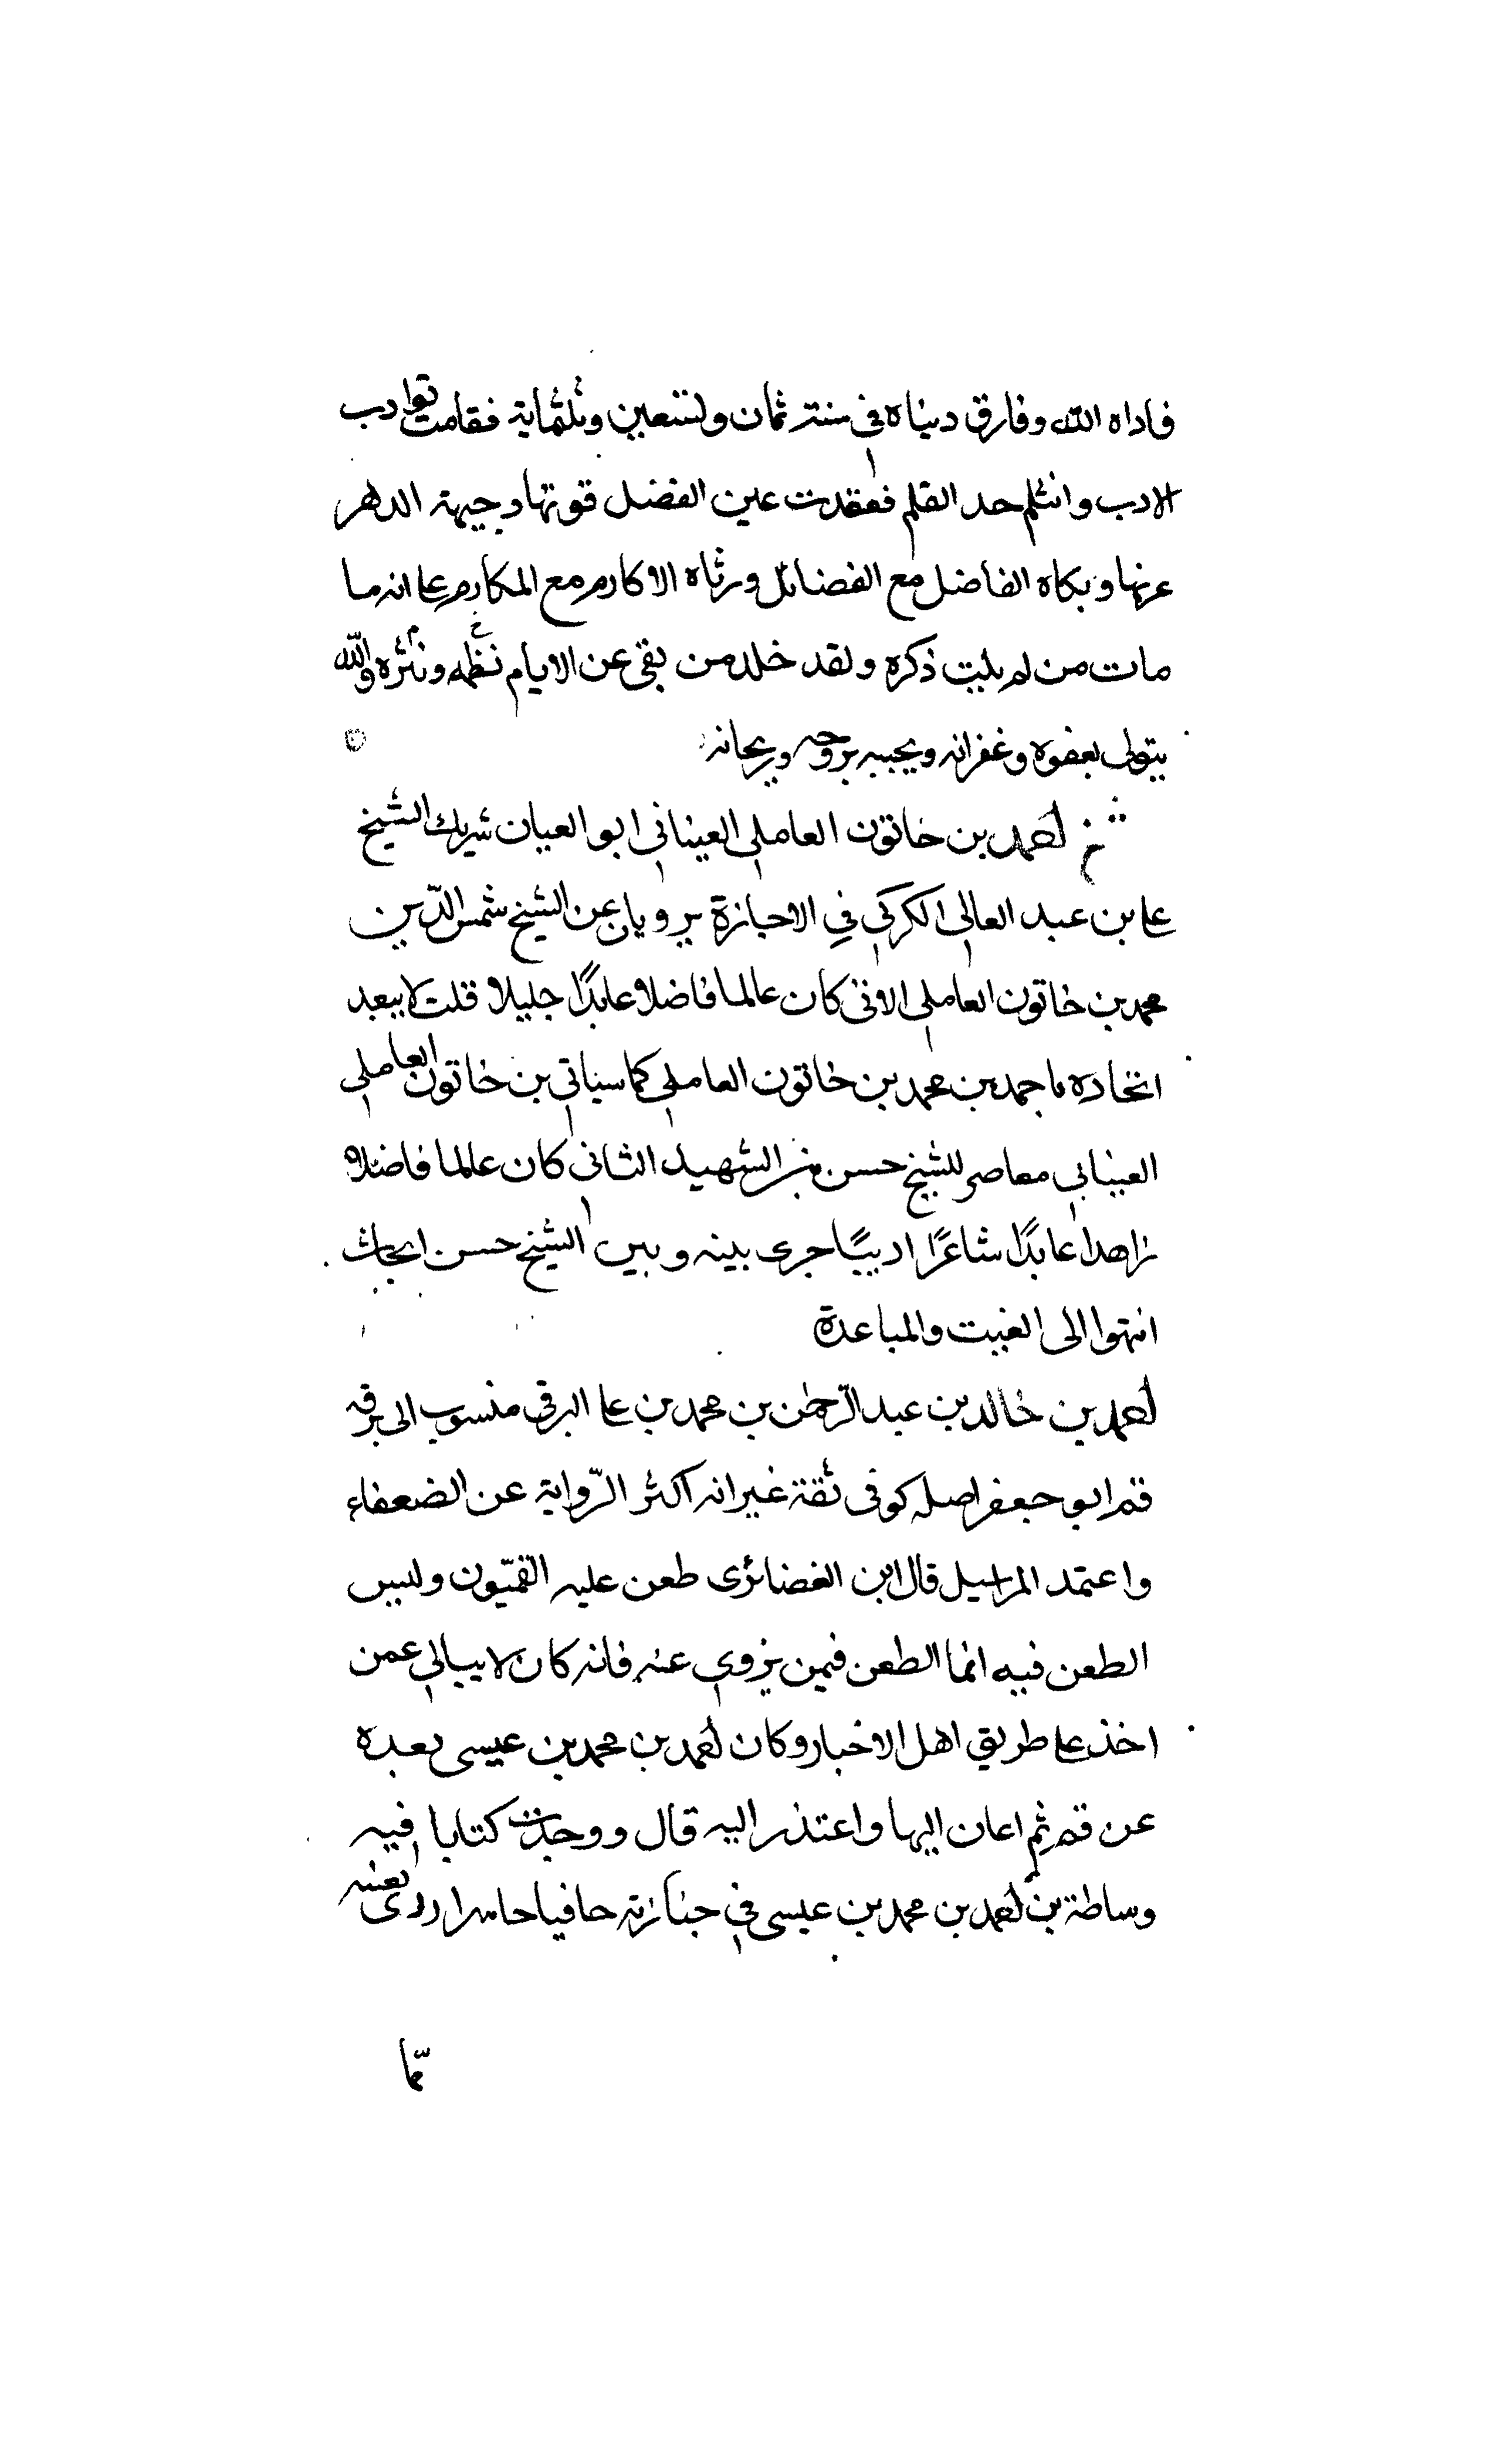 فاداه الله وفارق دنياه في سنة ثمان وتسعين وثلثماية فقامت نوادب
الادب وانثلم حد القلم ففقدت عين الفضل قوتها وجبهة الدهر
عزتها وبكاه الفاضل مع الفضائل ورثاه الاكارم مع المكارم على انه ما
مات من لم يمت ذكره ولقد خلد من بقى عن الايام نظمه ونثره والله
يتولى بعفوه وغفرانه ويجيبه بروحه وريحانه
احمد بن خاتون العاملي العيناثي ابو العيان شريك الشيخ
على بن عبد العالي الكركي في الاجازة يرويان عن الشيخ شمس الدّين
محمد بن خاتون العاملي الاتى كان عالما فاضلا عابدًا جليلا قلت لا يبعد
اتحاده باحمد بن محمد بن خاتون العاملي كما سياتي بن خاتون العاملي
العيناثي معاصر للشيخ حسن بن الشهيد الثاني كان عالما فاضلا
زاهدا عابدًا شاعرًا اديبًا جرى بينه وبين الشيخ حسن ابحاث
انتهوا الى الغيبت والمباعدة
احمد بن خالد بن عبد الرّحمن بن محمد بن على البرقى منسوب الى برقه
قم ابو جعفر اصله كوفى ثقة غير انه اكثر الرّواية عن الضعفاء
واعتمد المراسيل قال ابن الغضائرى طعن عليه القمّيون وليس
الطعن فيه انما الطعن فيمن يروي عنه فانه كان لا يبالي عمن
اخذ على طريق اهل الاخبار وكان احمد بن محمد بن عيسى بعده
عن قم ثم اعان اليها واعتذر اليه قال ووجدت كتابا فيه
وساطة بن احمد بن محمد بن عيسى في جنازته حافيا حاسرا نفسه
ممّا